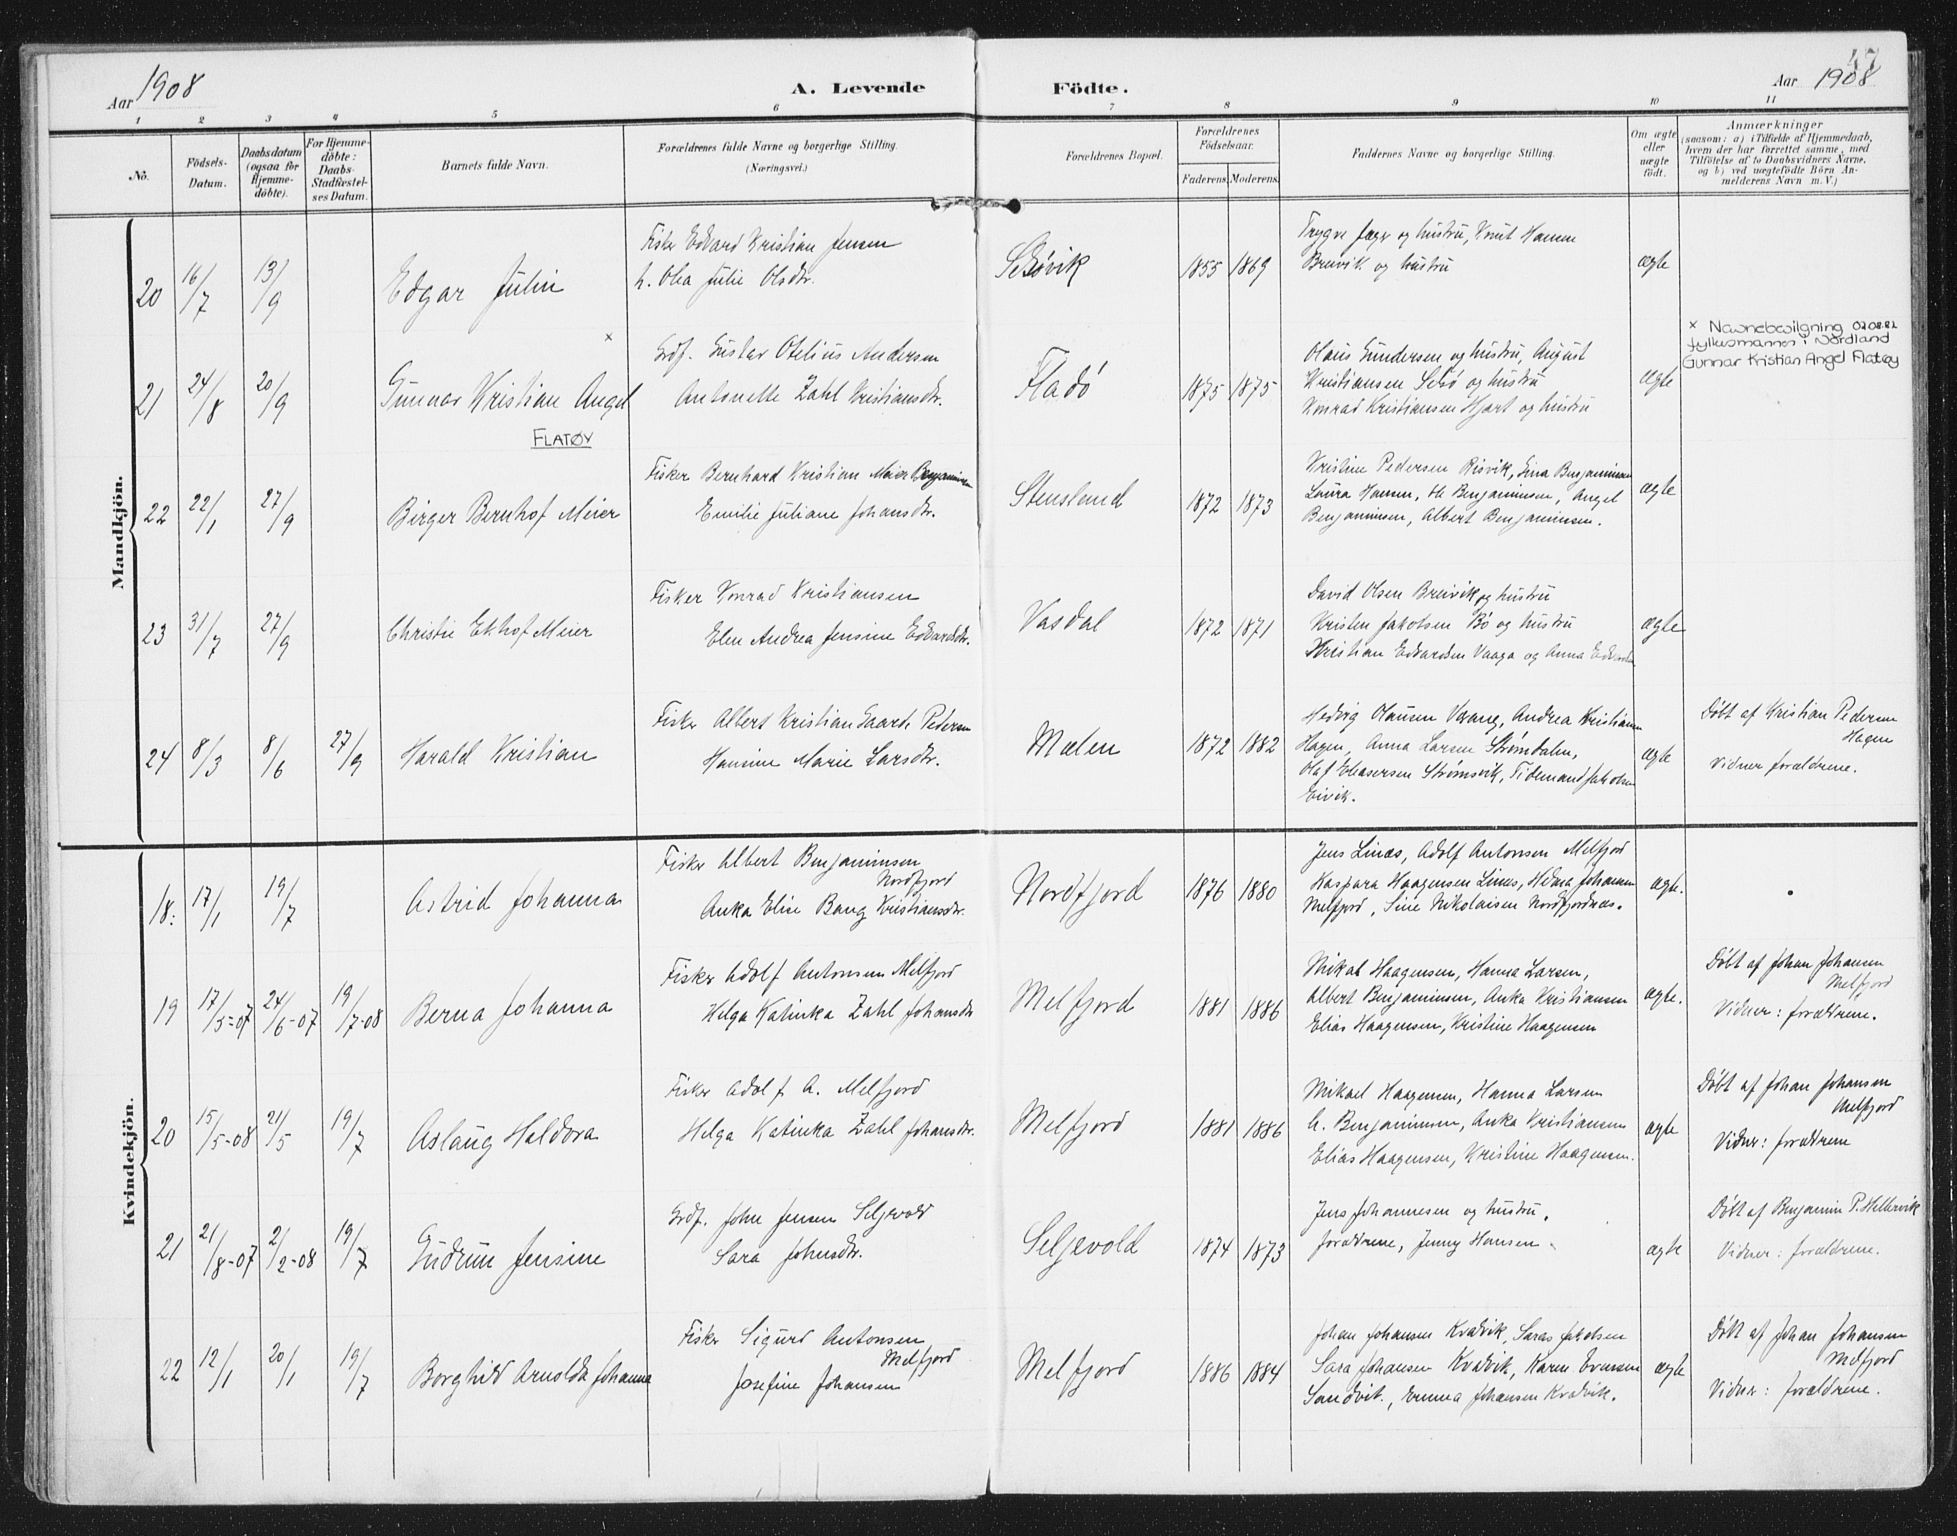 Aar 1908
A. Levende
Födte.
47
Aar 1908
1 2 3 4 5 6 7 8 9 10 11
No.
Födsels-
Datum.
Daabsdatum
(ogsaa for
Hjemme-
döbte).
For Hjemme-
döbte:
Daabs-
Stadfæstel-
ses Datum.
Barnets fulde Navn.
Forældrenes fulde Navne og borgerlige Stilling.
(Næringsvei.)
Forældrenes Bopæl.
Forældrenes
Födselsaar.
Faderens. Moderens.
Faddernes Navne og borgerlige Stilling.
Om ægte
eller
uægte
födt.
Anmærkninger
(saasom: a) i Tilfælde af Hjemmedaab,
hvem der har forrettet samme, med
Tilföielse af to Daabsvidners Navne,
og b) ved uægtefödte Börn An-
melderens Navn m. V.)
Mandkjön.
20 16/7 13/9 Edgar Julin
Fisker Edvard Kristian Jensen
h. Olea Julie Olsdtr.
Selsøvik
1855 1869
Trygve Jæger og hustru, Knut Hansen
Breivik og hustru
ægte
21 24/8 20/9 Gunnar Kristian Angel ×
FLATØY
Grdf. Gustav Otelius Andersen
Antonette Zahl Kristiansdtr.
Fladø
1875 1875
Olaus Gundersen og hustru, August
Kristiansen Selsø og hustru
Konrad Kristiansen Hjart og hustru
ægte
× Navnebevilgning 02.08.82
fylkesmannen i Nordland
Gunnar Kristian Angel Flatøy
22 22/1 27/9 Birger Bernhof Meier
Fisker Bernhard Kristian Meier Benjaminsen
Emilie Juliane Johansdtr.
Stensland
1872 1873
Kristine Pedersen Risvik, Gina Benjaminsen
Laura Hansen, H. Benjaminsen, Angel
Benjaminsen, Albert Benjaminsen.
ægte
23 31/7 27/9 Christie Ekhof Meier
Fisker Konrad Kristiansen
Elen Andrea Jensine Edvardsdtr.
Vasdal
1872 1871
David Olsen Breivik og hustru
Kristen Jakobsen Bø og hustru
Kristian Edvardsen Vaaga og Anna Edvardsen
ægte
24 8/3 8/6 27/9 Harald Kristian
Fisker Albert Kristian Gaarde Pedersen
Hansine Marie Larsdtr.
Mælen
1872 1882
Hedvig Olausen Værang, Andrea Kristiansen
Hagen, Anna Larsen Strømdalen,
Olaf Eleasersen Strømsvik, Tidemand Jakobsen
Eivik.
ægte
Døbt af Kristian Pedersen
Hagen
Vidner forældrene.
Kvindekjön.
18: 17/1 19/7 Astrid Johanna
Fisker Albert Benjaminsen
Nordfjord
Anka Elise Bang Kristiansdtr.
Nordfjord
1876 1880
Jens Linæs, Adolf Antonsen Melfjord
Kaspara Haagensen Linæs, Helma Johansen
Melfjord, Sine Nikolaisen Nordfjordnæs.
ægte.
19 17/5-07 24/6-07 19/7-08 Berna Johanna
Fisker Adolf Antonsen Melfjord
Helga Katinka Zahl Johansdtr
Melfjord
1881 1886
Mikal Haagensen, Hanna Larsen,
Albert Benjaminsen, Anka Kristiansen
Elias Haagensen, Kristine Haagensen
ægte.
Døbt af Johan Johansen
Melfjord
Vidner: forældrene.
20 15/5-08 21/5 19/7 Aslaug Haldora
Fisker Adolf A. Melfjord
Helga Katinka Zahl Johansdtr.
Melfjord
1881 1886
Mikael Haagensen, Hanna Larsen
A. Benjaminsen, Anka Kristiansen
Elias Haagensen, Kristine Haagensen.
ægte
Døbt af Johan Johansen
Melfjord
Vidner: forældrene
21 21/8-07 2/2-08 19/7 Gudrun Jensine
Grdf. John Jensen Seljevold
Sara Johnsdtr.
Seljevold
1874 1873
Jens Johannesen og hustru,
forældrene, Jenny Hansen.
ægte
Døbt af Benjamin P. Hellervik
Vidner: forældrene.
22 12/1 20/1 19/7 Borghild Arnolda Johanna
Fisker Sigurd Antonsen
Melfjord
Josefine Johansen
Melfjord
1886 1884
Johan Johansen Kvalvik, Saras Jakobsen
Sara Johansen Kvalvik, Karen Evensen
Sandvik, Emma Johansen Kvalvik.
ægte
Døbt af Johan Johansen
Melfjord
Vidner: forældrene.